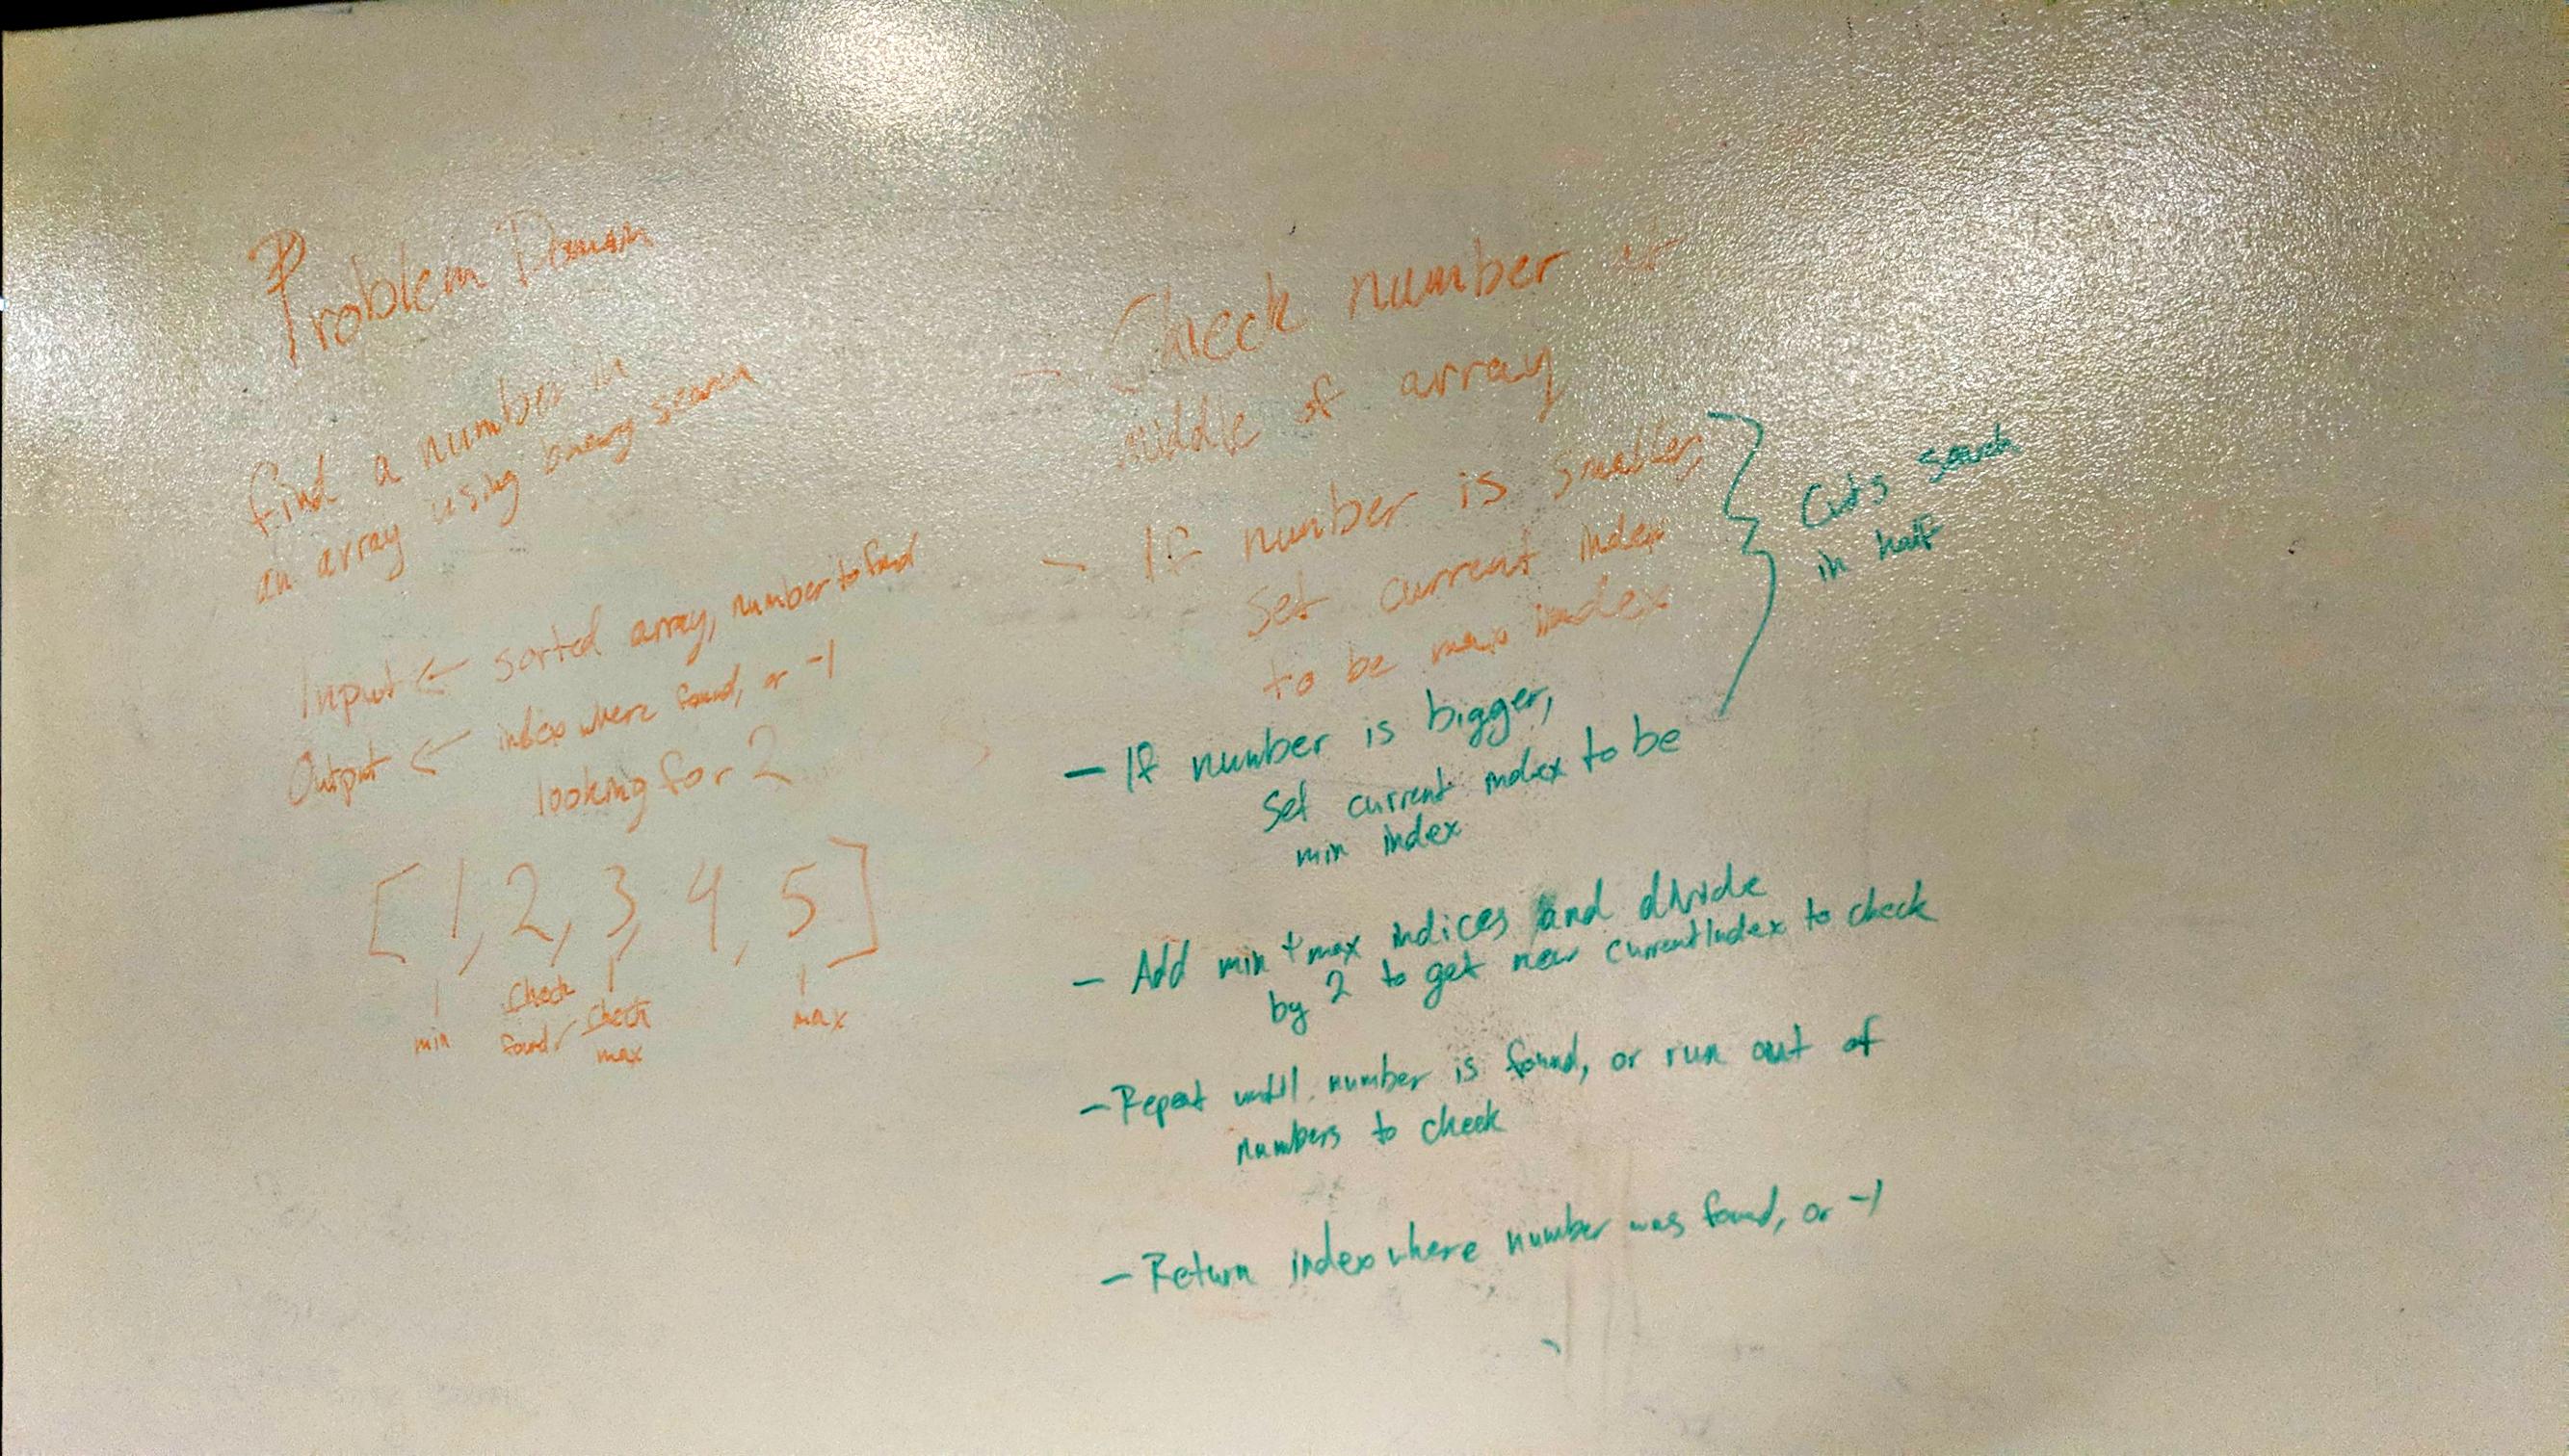 Problem Domain
find a number in
an array using binary search
Input ← sorted array, number to find
Output ← index where found, or -1
looking for 2
[1, 2, 3, 4, 5]
min
check
found ✓
check
max
max
- Check number at
middle of array
- If number is smaller,
set current index
to be max index
- If number is bigger,
set current index to be
min index
Cuts search
in half
- Add min + max indices and divide
by 2 to get new currentIndex to check
- Repeat until number is found, or run out of
numbers to check
- Return index where number was found, or -1